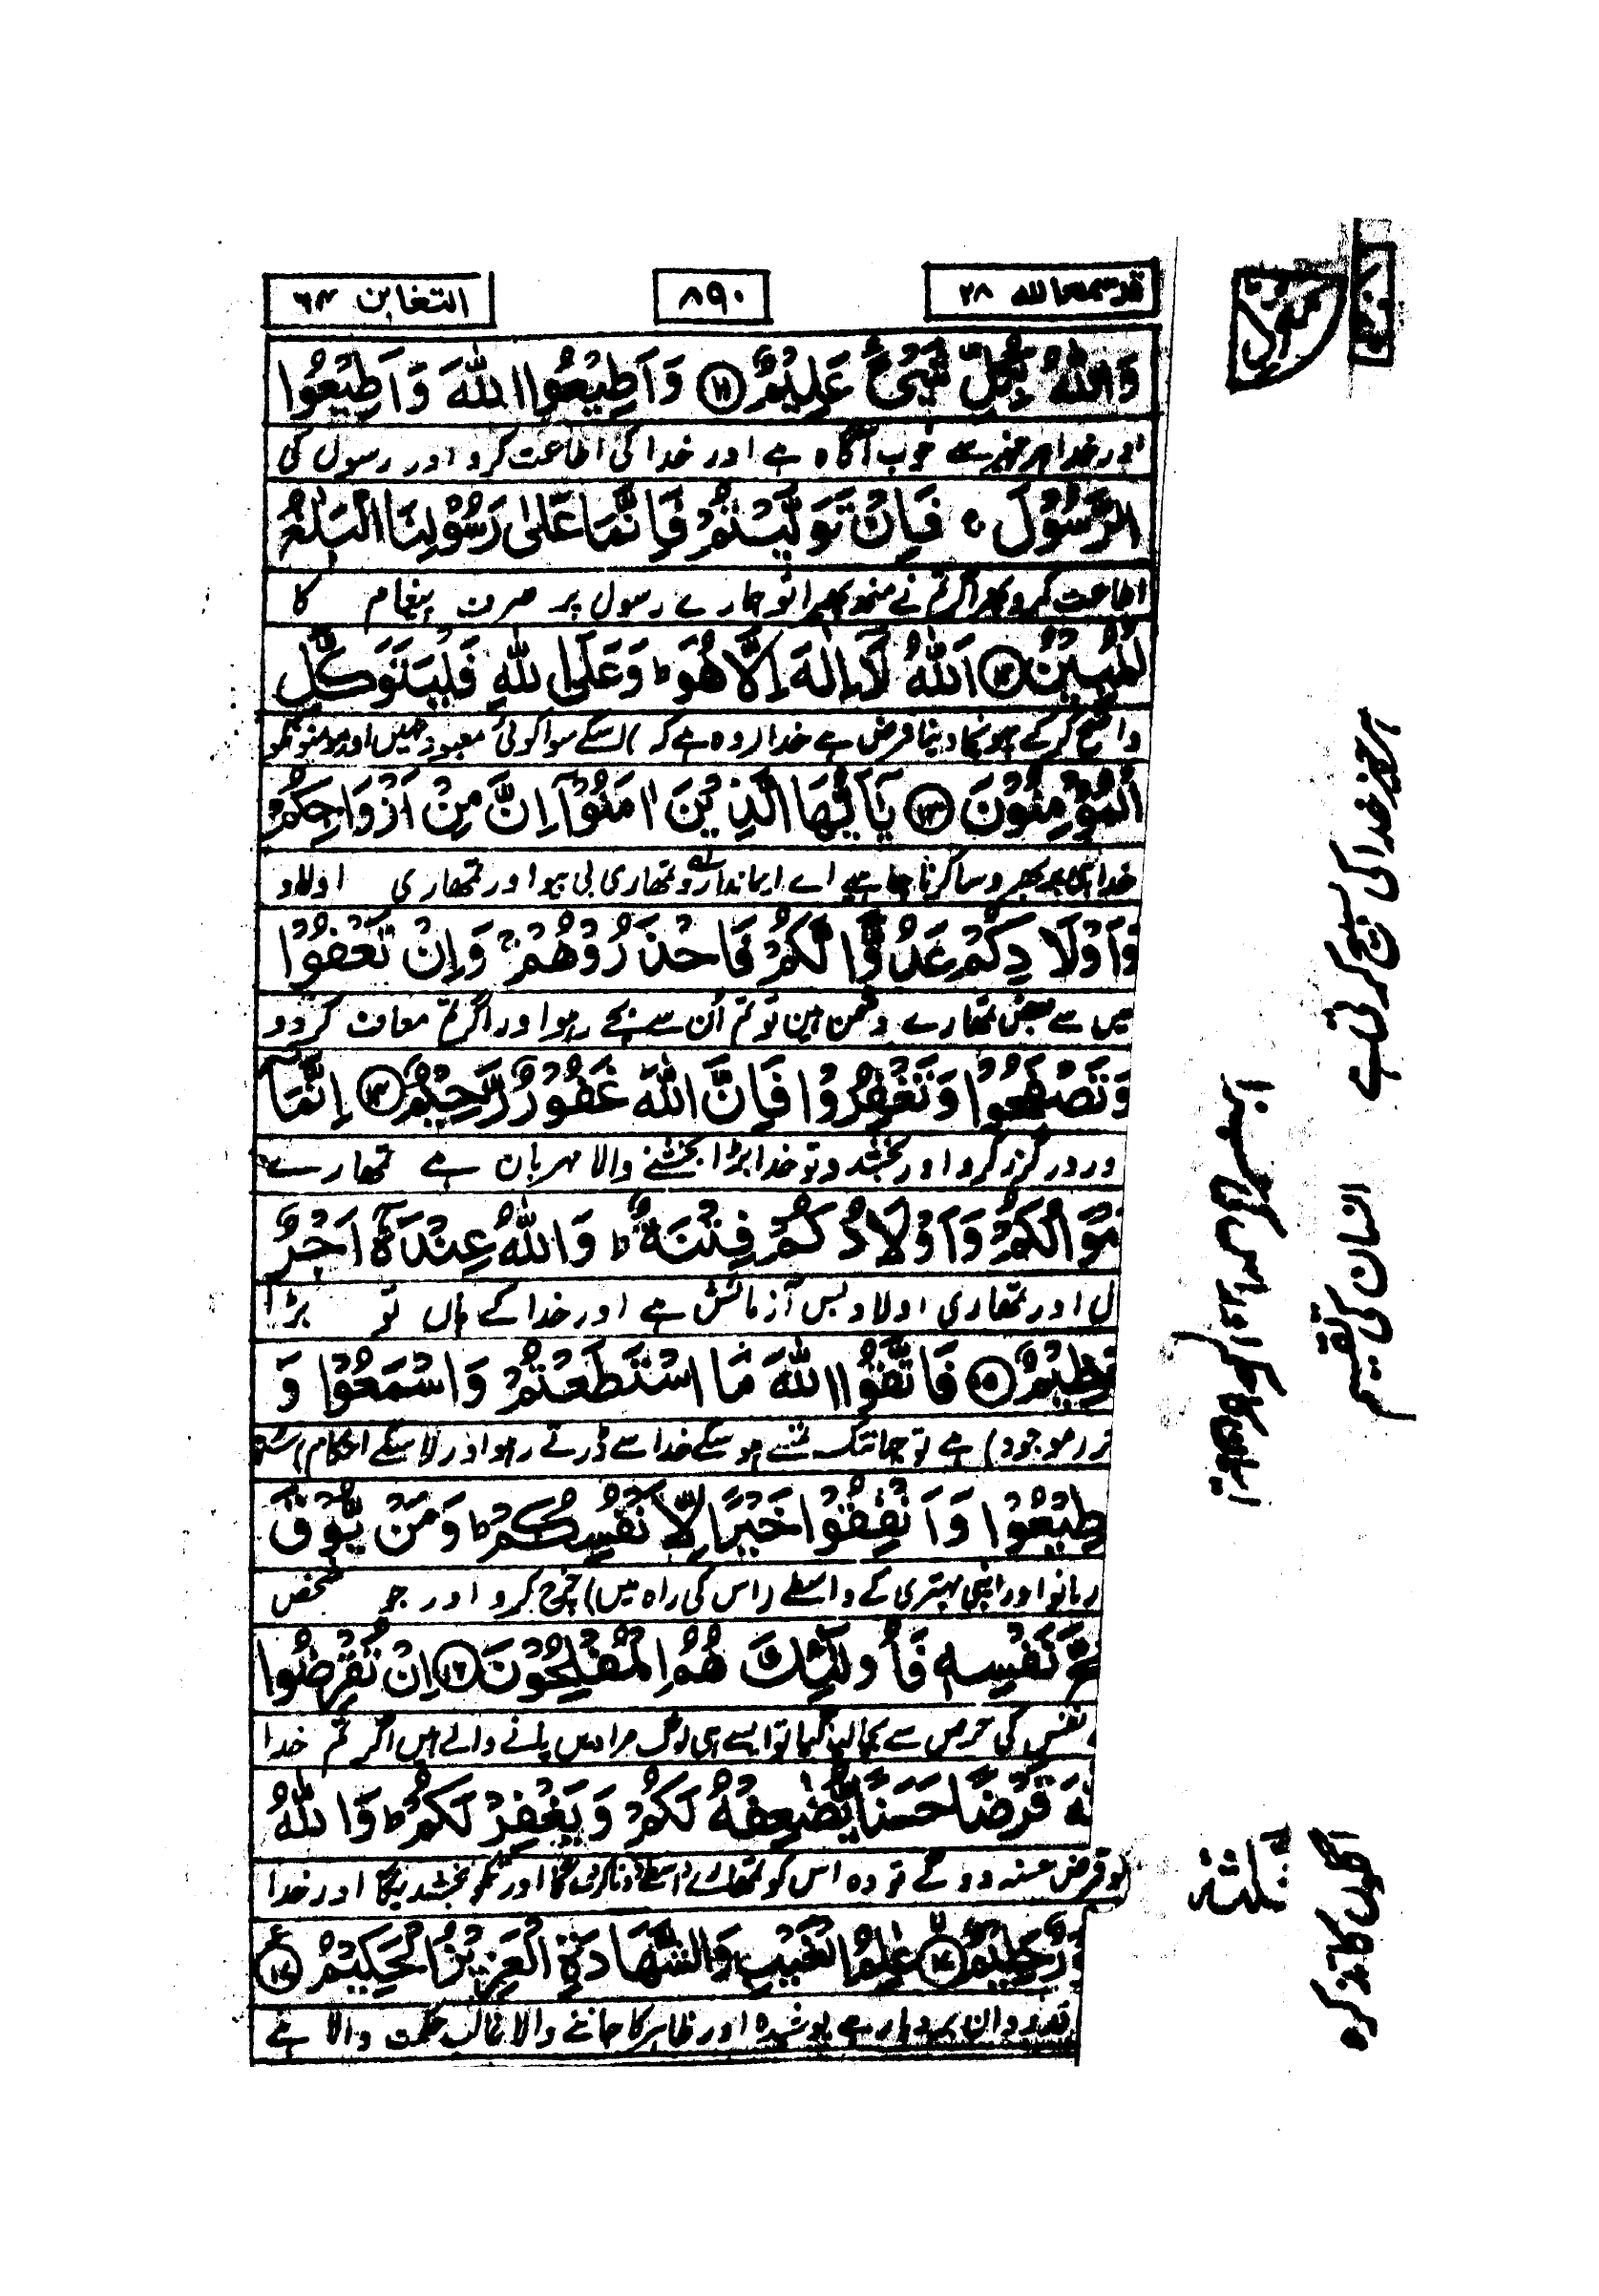 قد سمع الله ٢٨
٨٩٠
التغابن ٦٤
وَاللّٰهُ بِكُلِّ شَیْءٍ عَلِیْمٌ ⑪ وَاَطِیْعُوا اللّٰهَ وَاَطِیْعُوا
اور خدا ہر چیز سے خوب آگاہ ہے اور خدا کی اطاعت کرو اور رسول کی
الرَّسُوْلَ ۚ فَاِنْ تَوَلَّیْتُمْ فَاِنَّمَا عَلٰی رَسُوْلِنَا الْبَلٰغُ
اطاعت کرو پھر اگر تم نے منھ پھیرا تو ہمارے رسول پر صرف پیغام کا
لْمُبِیْنُ ⑫ اَللّٰهُ لَاۤ اِلٰهَ اِلَّا هُوَ ؕ وَعَلَی اللّٰهِ فَلْیَتَوَكَّلِ
واضح کرکے پہونچا دینا فرض ہے خدا وہ ہے کہ اسکے سوا کوئی معبود نہیں اور مومنونکو
الْمُؤْمِنُوْنَ ⑬ یٰۤاَیُّهَا الَّذِیْنَ اٰمَنُوْۤا اِنَّ مِنْ اَزْوَاجِكُمْ
خدا ہی پر بھروسا کرنا چاہیے اے ایماندارو تمھاری بی بیو اور تمھاری اولاد
وَاَوْلَادِكُمْ عَدُوًّا لَّكُمْ فَاحْذَرُوْهُمْ ۚ وَاِنْ تَعْفُوْا
میں سے بعض تمھارے دشمن ہین تو تم اُن سے بچے رہو اور اگر تم معاف کردو
وَتَصْفَحُوْا وَتَغْفِرُوْا فَاِنَّ اللّٰهَ غَفُوْرٌ رَّحِیْمٌ ⑭ اِنَّمَاۤ
ور درگزر کرو اور بخشدو تو خدا بڑا بخشنے والا مہربان ہے تمھارے
مْوَالُكُمْ وَاَوْلَادُكُمْ فِتْنَةٌ ؕ وَاللّٰهُ عِنْدَهٗۤ اَجْرٌ
ل اور تمھاری اولاد بس آزمائش ہے اور خدا کے ہاں تو بڑا
عَظِیْمٌ ⑮ فَاتَّقُوا اللّٰهَ مَا اسْتَطَعْتُمْ وَاسْمَعُوْا وَ
ر (موجود) ہے تو جہانتک تمسے ہوسکے خدا سے ڈرتے رہو اور (اسکے احکام)
طِیْعُوْا وَاَنْفِقُوْا خَیْرًا لِّاَنْفُسِكُمْ ؕ وَمَنْ یُّوْقَ
ر مانو اور اپنی بہتری کے واسطے (اس کی راہ میں) خرچ کرو اور جو شخص
حَّ نَفْسِهٖ فَاُولٰٓئِكَ هُمُ الْمُفْلِحُوْنَ ⑯ اِنْ تُقْرِضُوا
نفس کی حرص سے بچا لیا گیا تو ایسے ہی لوگ مرادیں پانے والے ہیں اگر تم خدا
لّٰهَ قَرْضًا حَسَنًا یُّضٰعِفْهُ لَكُمْ وَیَغْفِرْ لَكُمْ ؕ وَاللّٰهُ
کو قرض حسنہ دوگے تو وہ اس کو تمھارے واسطے دونا کردیگا اور تمکو بخشدیگا اور خدا
وْرٌ حَلِیْمٌ ⑰ عٰلِمُ الْغَیْبِ وَالشَّهَادَةِ الْعَزِیْزُ الْحَكِیْمُ ⑱
قدردان بردبار ہے پوشیدہ اور ظاہر کا جاننے والا غالب حکمت والا ہے
ہر چیز خدا کی تسبیح کرتی ہے
انسان کی تقسیم
اگلوں کا تذکرہ
ثلثة